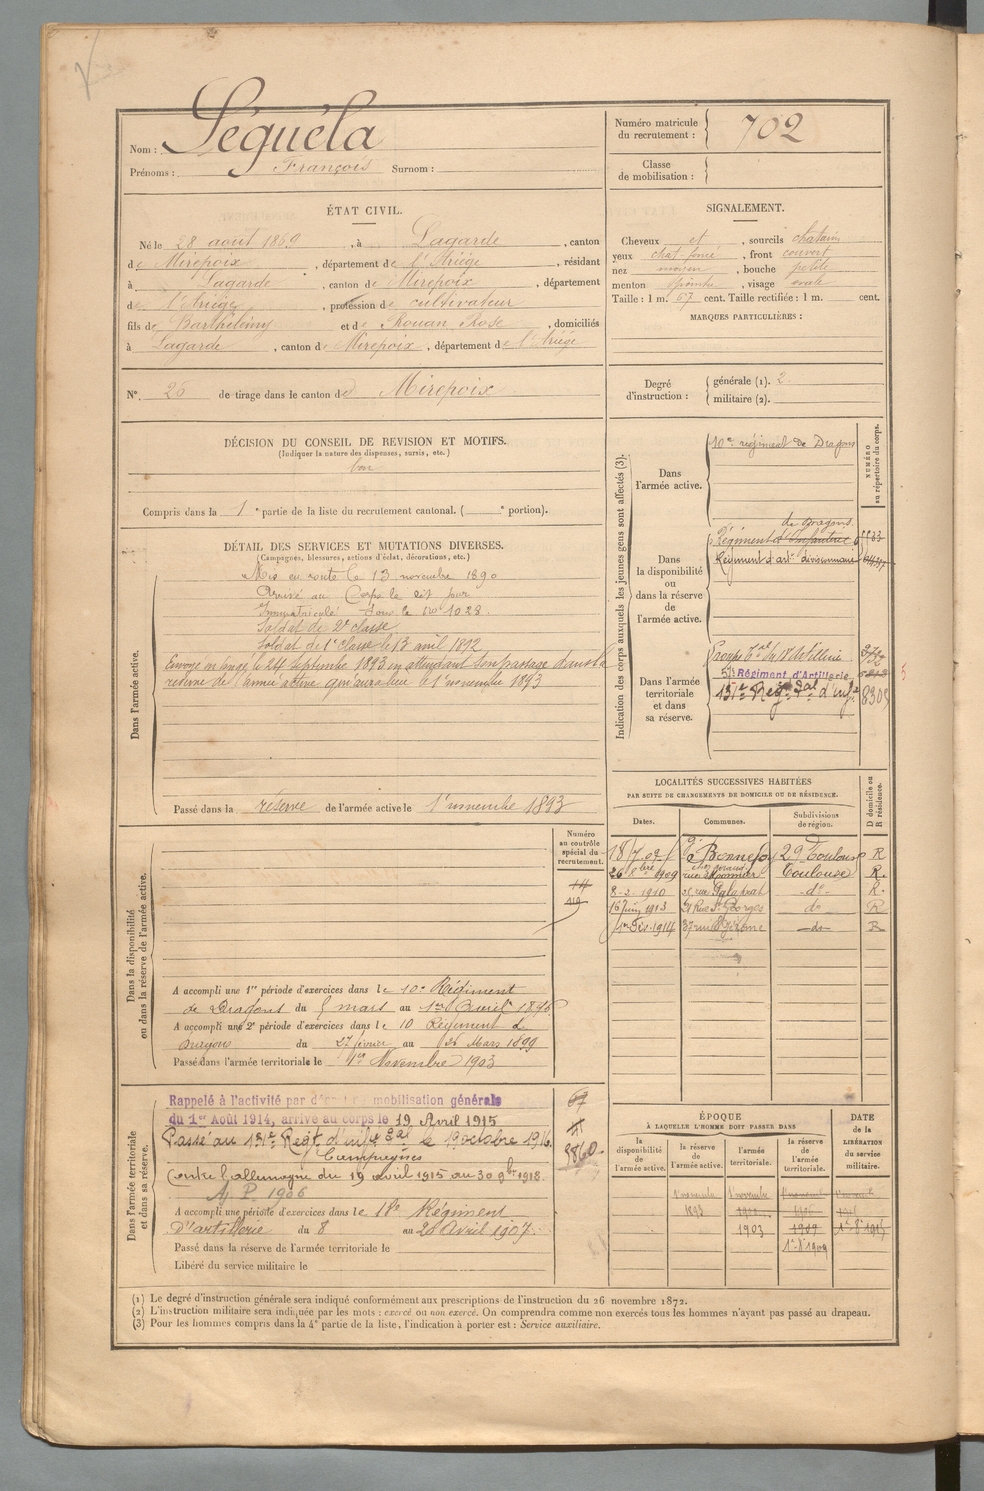 Nom : Séguéla
Prénoms : François Surnom :
Numéro matricule du recrutement : 702
Classe de mobilisation :
ÉTAT CIVIL.
Né le 28 août 1869, à Lagarde, canton
de Mirepoix, département de l'Ariège, résidant
à Lagarde, canton de Mirepoix, département
de l'Ariège, profession de cultivateur
fils de Barthélémy et de Rouan Rose, domiciliés
à Lagarde, canton de Mirepoix, département de l'Ariège
SIGNALEMENT.
Cheveux et, sourcils chatain
yeux chat-foncé, front couvert
nez moyen, bouche petite
menton, visage ovale
Taille : 1 m. 67 cent. Taille rectifiée : 1 m. cent.
MARQUES PARTICULIÈRES :
N° 26 de tirage dans le canton de Mirepoix
Degré d'instruction : générale (1). 2
militaire (2).
DÉCISION DU CONSEIL DE REVISION ET MOTIFS.
(Indiquer la nature des dispenses, sursis, etc.)
bon
Compris dans la 1e partie de la liste du recrutement cantonal. ( e portion).
DÉTAIL DES SERVICES ET MUTATIONS DIVERSES.
(Campagnes, blessures, actions d'éclat, décorations, etc.)
Dans l'armée active.
Mis en route le 13 novembre 1890
Arrivé au Corps le dit jour
Immatriculé sous le no 1028.
Soldat de 2e classe
Soldat de 1e classe le 13 avril 1892
Envoyé en congé le 24 septembre 1893 en attendant son passage dans la
réserve de l'armée active qui aura lieu le 1er novembre 1893
Passé dans la réserve de l'armée active le 1er novembre 1893
Indication des corps auxquels les jeunes gens sont affectés (3).
NUMÉRO au répertoire du corps.
Dans l'armée active.
10e régiment de Dragons
Dans la disponibilité ou dans la réserve de l'armée active.
de Dragons
Régiment d'Infanterie
Régiment d'arties divisionnaire
Dans l'armée territoriale et dans sa réserve.
Régiment d'Artillerie
131e Regt tal d'infie 8305
5
LOCALITÉS SUCCESSIVES HABITÉES
PAR SUITE DE CHANGEMENTS DE DOMICILE OU DE RÉSIDENCE.
Dates. Communes. Subdivisions de région. D domicile ou R résidence.
18/7 09 Bonnefoy 29 Toulouse R
1909 Toulouse R.
8-2 1910 rue do R.
16 Juin 1913 21 Rue St Georges do R
1er Déc. 1914 37 rue St Jérôme do R
Dans la disponibilité ou dans la réserve de l'armée active.
Numéro au contrôle spécial du recrutement.
A accompli une 1re période d'exercices dans le 10e Régiment
de Dragons du 5 mars au 1er Avril 1896
A accompli une 2e période d'exercices dans le 10 Régiment de
Dragons du 27 février au 26 Mars 1899
Passé dans l'armée territoriale le 1er Novembre 1903
Dans l'armée territoriale et dans sa réserve.
Rappelé à l'activité par décret de mobilisation générale
du 1er Août 1914, arrivé au corps le 19 Avril 1915
Passé au 131e Regt d'infie tal le 19 octobre 1916.
Campagnes
Contre l'allemagne du 19 avril 1915 au 30 9bre 1918.
A P 1906
3860
A accompli une période d'exercices dans le 18e Régiment
D'artillerie du 8 au 20 Avril 1907.
Passé dans la réserve de l'armée territoriale le
Libéré du service militaire le
ÉPOQUE
À LAQUELLE L'HOMME DOIT PASSER DANS
la disponibilité de l'armée active. la réserve de l'armée active. l'armée territoriale. la réserve de l'armée territoriale.
DATE de la LIBÉRATION du service militaire.
1er novembre 1er novembre
1893
1903 1909
(1) Le degré d'instruction générale sera indiqué conformément aux prescriptions de l'instruction du 26 novembre 1872.
(2) L'instruction militaire sera indiquée par les mots : exercé ou non exercé. On comprendra comme non exercés tous les hommes n'ayant pas passé au drapeau.
(3) Pour les hommes compris dans la 4e partie de la liste, l'indication à porter est : Service auxiliaire.